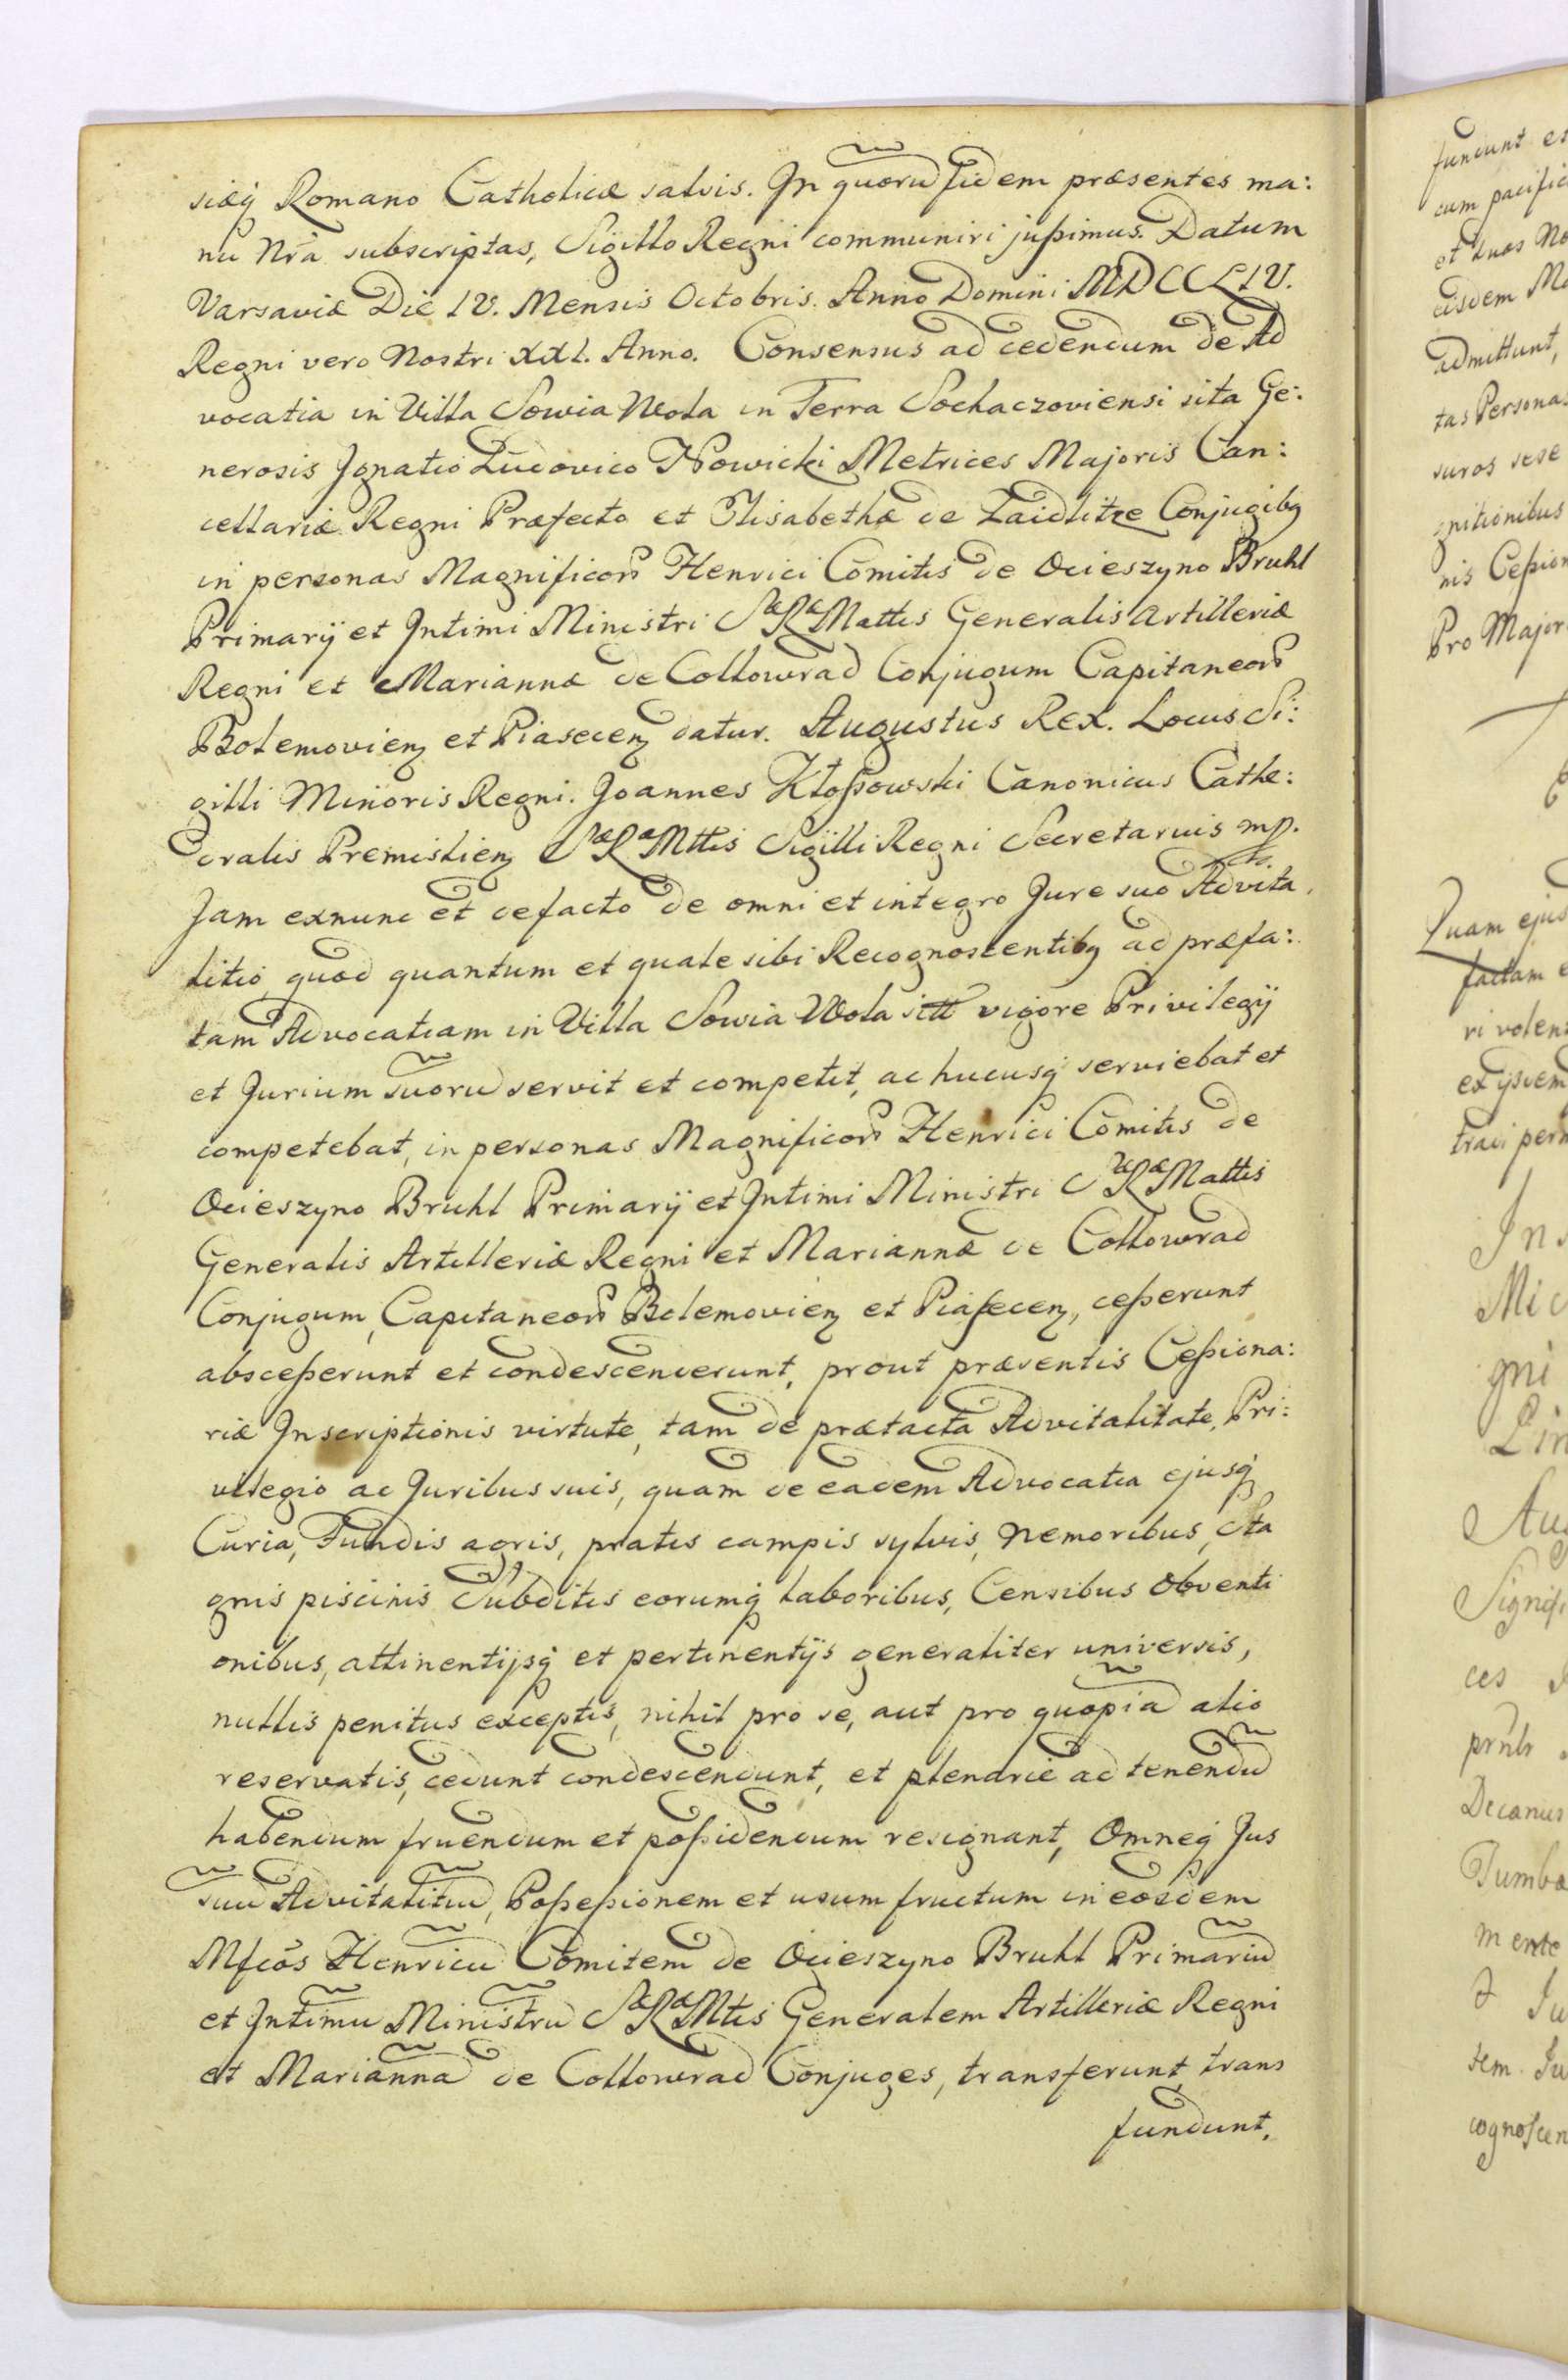 siæq Romano Catholicæ salvis. In quorũ fidem præsentes ma:
nu Nr̃a subscriptas, Sigillo Regni communiri jußimus. Datum
Varsaviæ Die IV. Mensis Octobris. Anno Domini MDCCLIV.
Regni vero Nostri XXI. Anno. Consensus ad cedendum de Ad
vocatia in Villa Sowia Wola in Terra Sochaczoviensi sita Ge:
nerosis Ignatio Ludovico Nowicki Metrices Majoris Can:
cellariæ Regni Præfecto et Elisabethæ de Zaidlitze Conjugibq
in personas Magnificor Henrici Comitis de Ocieszyno Bruhl
Primarÿ et Intimi Ministri SæRæMattis Generalis Artilleriæ
Regni et Mariannæ de Collowrad Conjugum Capitaneor
Bolemovienz et Piasecenz datur. Augustus Rex. Locus Si:
gilli Minoris Regni. Joannes Kłoßowski Canonicus Cathe:
dralis Premislienz SæRæMttis Sigilli Regni Secretarius mp.
Jam exnunc et defacto de omni et integro Jure suo Advita
litio quod quantum et quale sibi Recognoscentibq ad præfa:
tam Advocatiam in Villa Sowia Wola sitt vigore Privilegÿ
et Jurium suorũ servit et competit, ac hucusq serviebat et
competebat, in personas Magnificor Henrici Comitis de
Ocieszyno Bruhl Primarÿ et Intimi Ministri SæRæMattis
Generalis Artilleriæ Regni et Mariannæ de Collowrad
Conjugum, Capitaneor Bolemovienz et Piasecenz, ceßerunt
absceßerunt et condescenderunt, prout præsentis Ceßiona:
riæ Inscriptionis virtute, tam de prætacta Advitalitate, Pri:
vilegio ac Juribus suis, quam de eadem Advocatia ejusq
Curia, Fundis agris, pratis campis sylvis, nemoribus, Sta
gnis piscinis Subditis eorumq laboribus, Censibus Obventi
onibus, attinentijsq et pertinentÿs generaliter universis,
nullis penitus exceptis, nihil pro se, aut pro quopiã alio
reservatis, cedunt condescendunt, et plenarie ad tenendũ
habendum fruendum et poßidendum resignant, Omneq Jus
suũ Advitalitiũ, Poßeßionem et usum fructum in eosdem
Mfcos Henricũ Comitem de Ocieszyno Bruhl Primariũ
et Intimũ Ministrũ SæRæMtis Generalem Artilleriæ Regni
et Mariannã de Collowrad Conjuges, transferunt, trans
fundunt,
fundunt et
cum pacific
et duas No
eisdem M
admittunt,
tas Personas
suros sese
gnitionibus
nis Ceßion
Pro Major
Quam ejus
factam e
ri volens
ex ÿsdem
tradi perm
Ins
Mic
gni
Lin
Au
Signifi
ces
Decanus
Tumba
mente
tem Ju
cognoscen